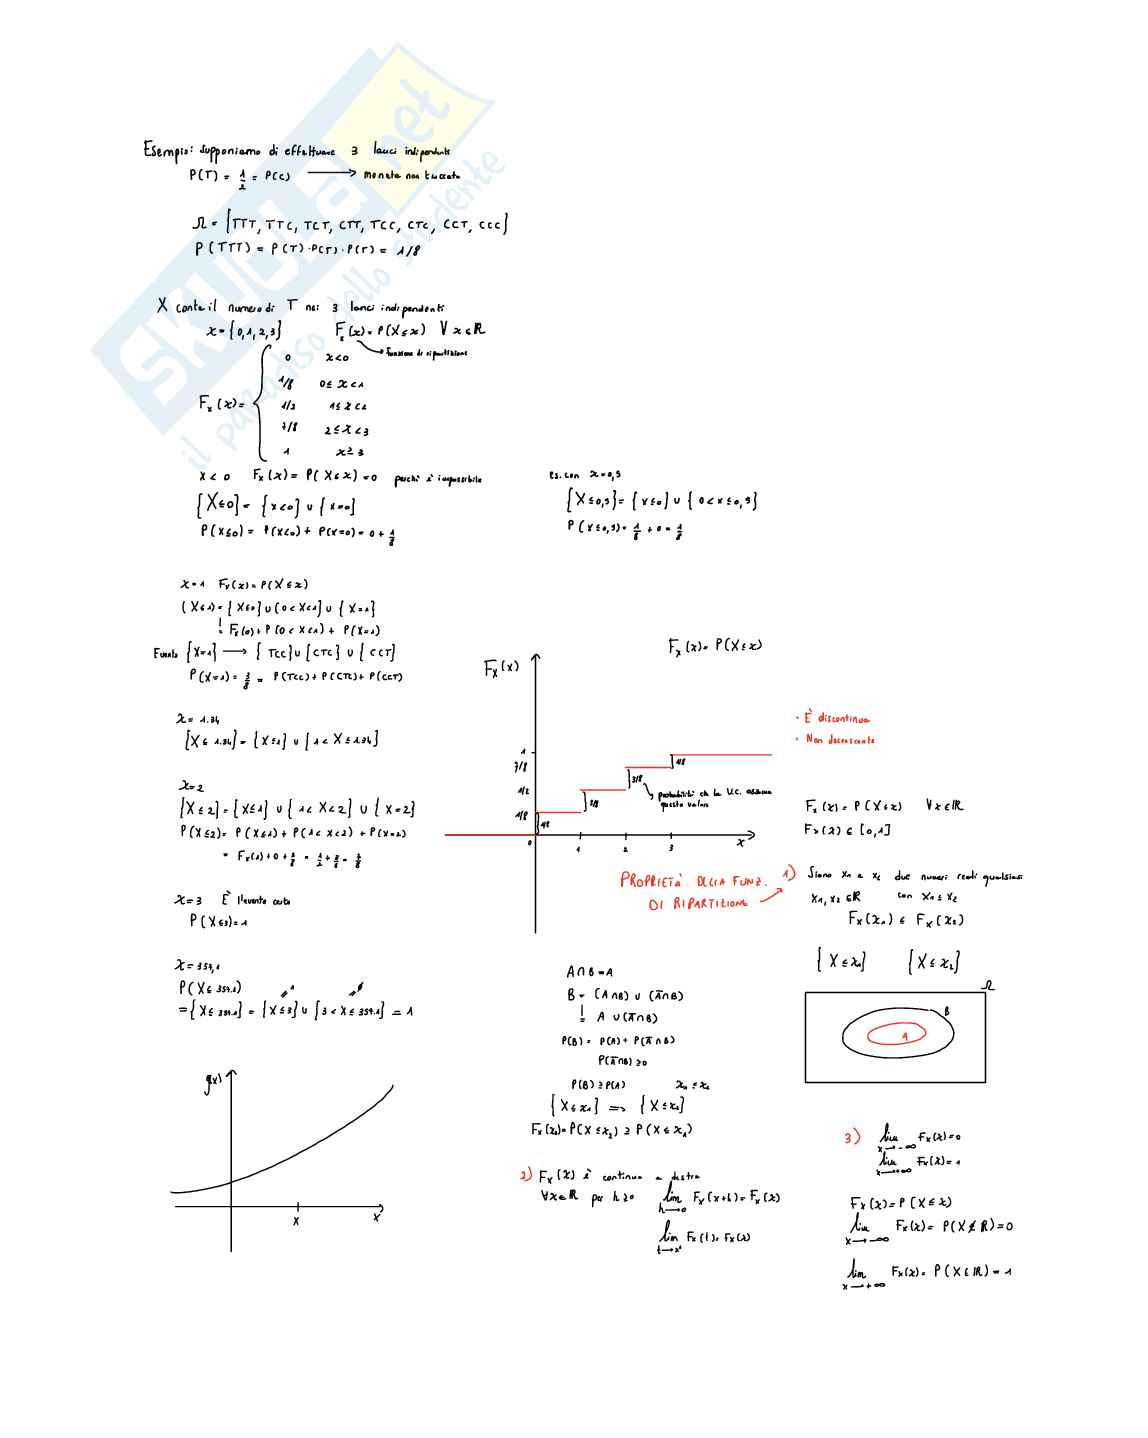 SKUOLA.net
il paradiso dello studente
Esempio: supponiamo di effettuare 3 lanci indipendenti
P(T) = 1/2 = P(C) → moneta non truccata
Ω = {TTT, TTC, TCT, CTT, TCC, CTC, CCT, CCC}
P(TTT) = P(T)·P(T)·P(T) = 1/8
X conta il numero di T nei 3 lanci indipendenti
x = {0,1,2,3} Fx(x) = P(X≤x) ∀ x∈ℝ
funzione di ripartizione
Fx(x) =
0 x<0
1/8 0≤x<1
1/2 1≤x<2
7/8 2≤x<3
1 x≥3
x<0 Fx(x) = P(X≤x) = 0 perché è impossibile
{X≤0} = {x<0} ∪ {x=0}
P(X≤0) = P(X<0) + P(X=0) = 0 + 1/8
es. con x=0,5
{X≤0,5} = {x≤0} ∪ {0<x≤0,5}
P(X≤0,5) = 1/8 + 0 = 1/8
x=1 Fx(x) = P(X≤x)
(X≤1) = {X≤0} ∪ (0<X<1} ∪ {X=1}
= Fx(0) + P(0<X<1) + P(X=1)
Evento {X=1} → {TCC} ∪ {CTC} ∪ {CCT}
P(X=1) = 3/8 = P(TCC) + P(CTC) + P(CCT)
x = 1.34
{X≤1.34} = {X≤1} ∪ {1<X≤1.34}
x=2
{X≤2} = {X≤1} ∪ {1<X<2} ∪ {X=2}
P(X≤2) = P(X≤1) + P(1<X<2) + P(X=2)
= Fx(1) + 0 + 3/8 = 1/2 + 3/8 = 7/8
x=3 È l'evento certo
P(X≤3)=1
x=357,1
P(X≤357.1)
= {X≤357.1} = {X≤3} ∪ {3<X≤357.1} = 1
g(x)
x
x
Fx(x) = P(X≤x)
Fx(x)
1
7/8
1/2
1/8
1/8
3/8
3/8
1/8
0
1
2
3
x
probabilità che la V.C. assuma
questo valore
· È discontinua
· Non decrescente
PROPRIETÀ DELLA FUNZ.
DI RIPARTIZIONE
Fx(x) = P(X≤x) ∀x∈ℝ
Fx(x) ∈ [0,1]
1) Siano x1 e x2 due numeri reali qualsiasi
x1, x2 ∈ℝ con x1≤x2
Fx(x1) ≤ Fx(x2)
{X≤x1} {X≤x2}
Ω
B
A
A∩B=A
B = (A∩B) ∪ (A̅∩B)
= A ∪ (A̅∩B)
P(B) = P(A) + P(A̅∩B)
P(A̅∩B) ≥0
P(B) ≥ P(A) x1 ≤ x2
{X≤x1} => {X≤x2}
Fx(x2) = P(X≤x2) ≥ P(X≤x1)
2) Fx(x) è continua a destra
∀x∈ℝ per h≥0 lim h→0 Fx(x+h) = Fx(x)
lim t→x⁺ Fx(t) = Fx(x)
3) lim x→-∞ Fx(x)=0
lim x→+∞ Fx(x)=1
Fx(x) = P(X≤x)
lim x→-∞ Fx(x) = P(X∉ℝ) = 0
lim x→+∞ Fx(x) = P(X∈ℝ) = 1